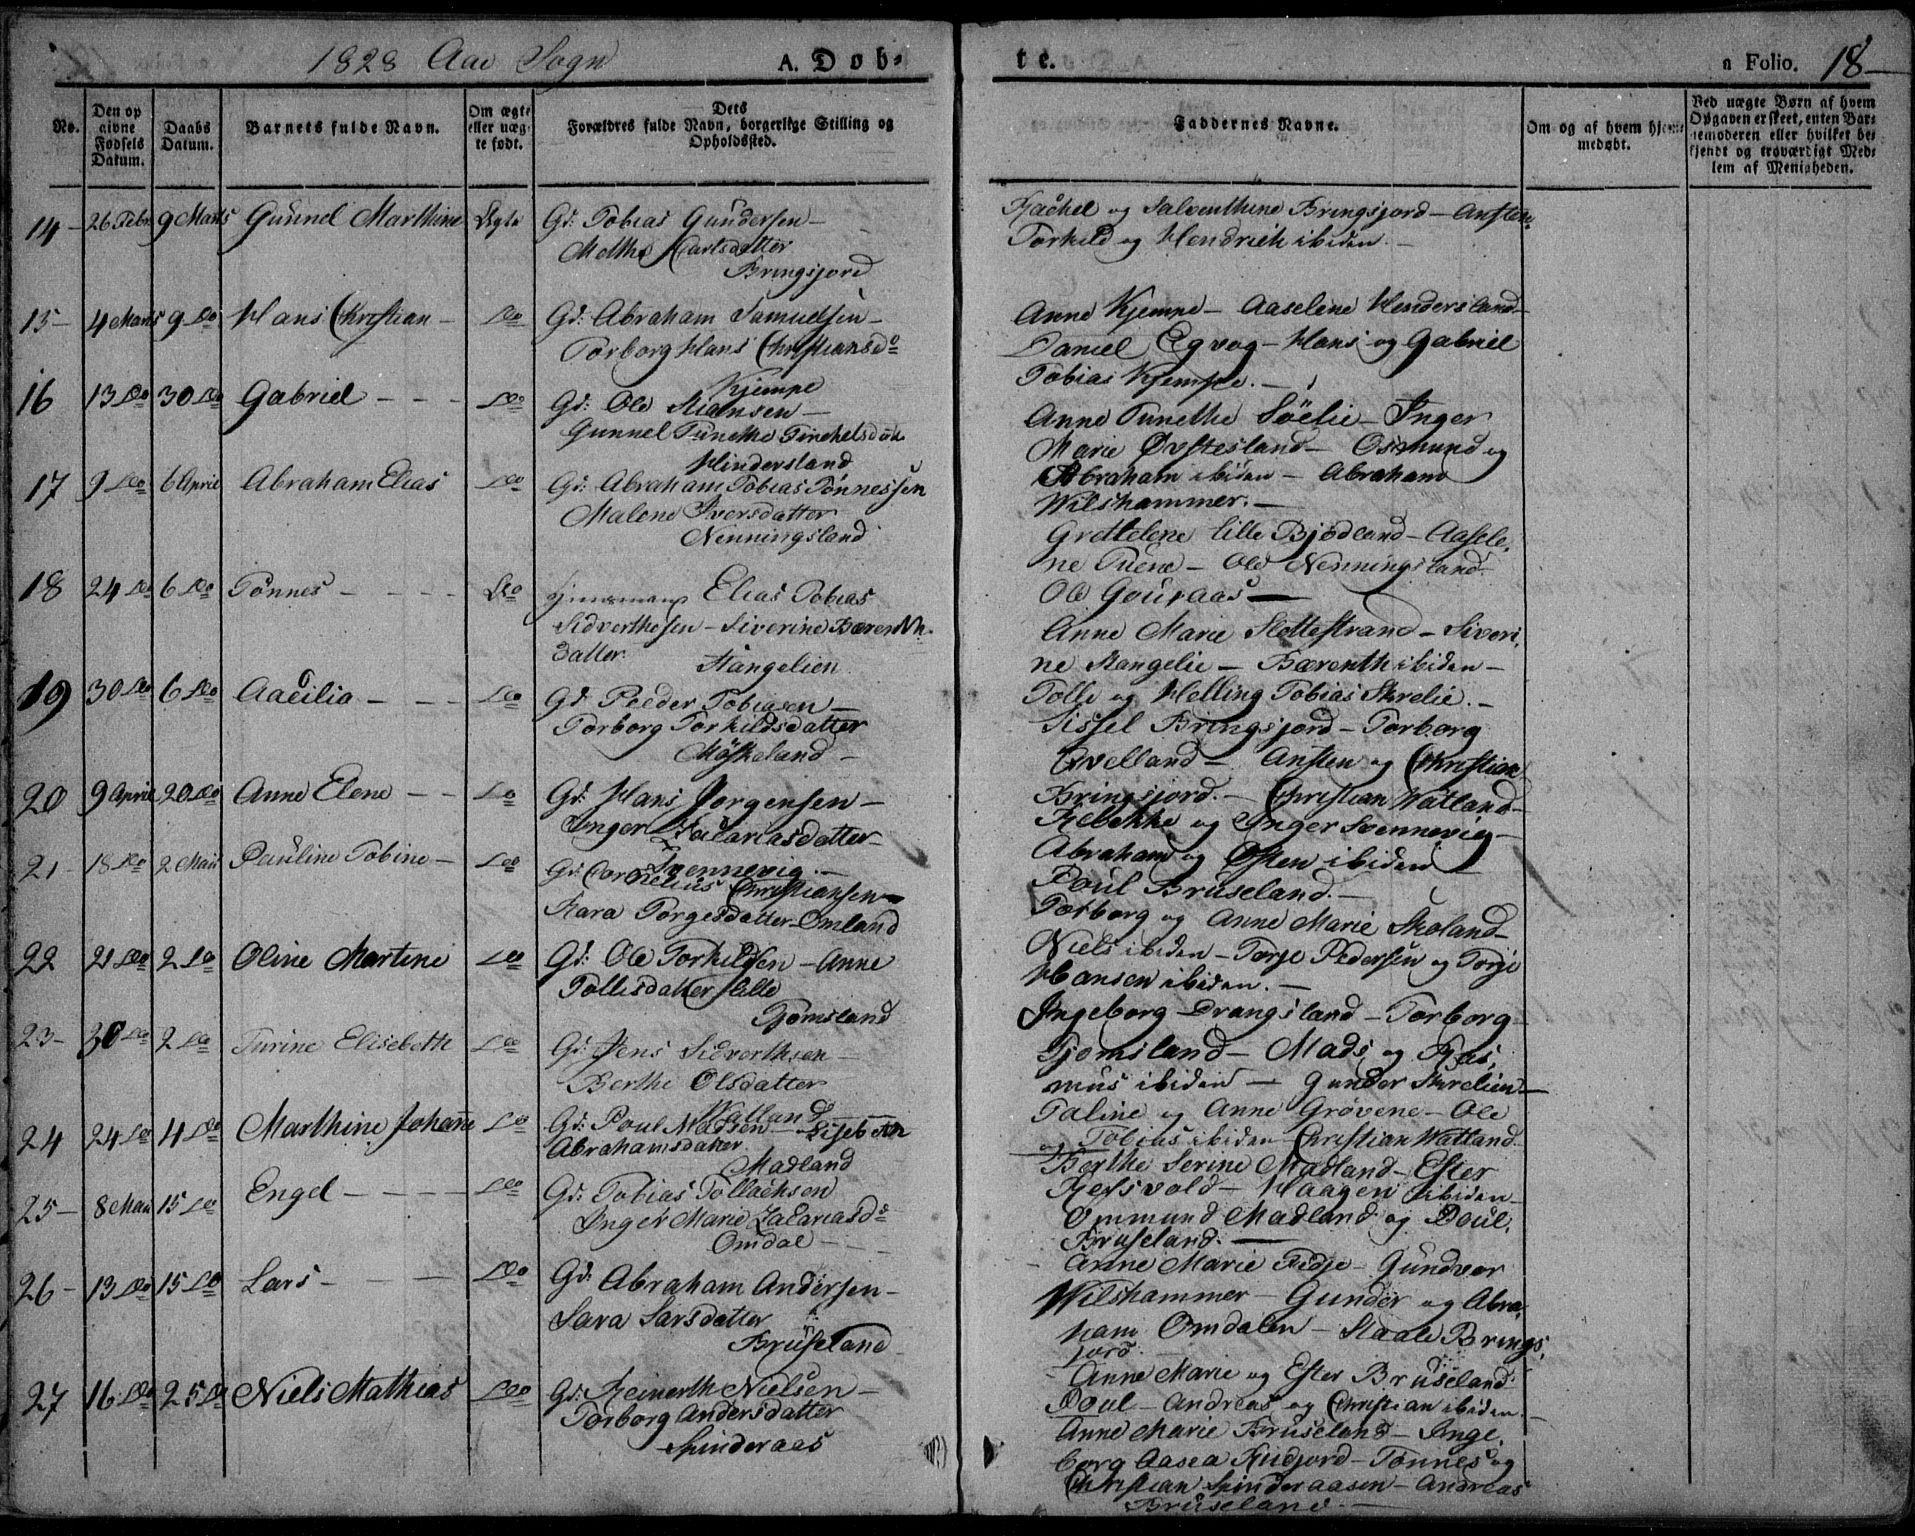 1828 Aae Sogn
A. Døb-
te.
n Folio. 18
No.
Den op
givne
Fødsels
Datum.
Daabs
Datum.
Barnets fulde Navn.
Om ægte
eller uæg-
te født.
Dets
Forældres fulde Navn, borgerlige Stilling og
Opholdssted.
Faddernes Navne.
Om og af hvem hjem-
medøbt.
Ved uægte Børn af hvem
Opgaven er skeet, enten Bar-
nemoderen eller hvilket be-
kjendt og troværdigt Med-
lem af Menigheden.
14 26 Febr 9 Marts Gunnel Marthine Ægte Gd: Tobias Gundersen
Carlsdatter
Bringsjord
Rachel og Salventhine Bringsjord – Ansten
Torkild og Hendrich ibiden.
15 4 Marts 9 Do Hans Christian Do Gd: Abraham Samuelsen
Torborg Hans Christiansdr
Kjempe
Anne Kjempe – Aaselene Hendersland
Daniel Egvog – Hans og Gabriel
Tobias Kjempe.
16 13 Do 30 Do Gabriel Do Gd: Ole
Gunnel Tunethe
Hindersland
Anne Tunethe Söelie – Inger
Marie Øvstesland – Osmund og
Abraham ibiden – Abraham
Wilshammer.
17 9 Do 6 April Abraham Elias Do Gd: Abraham Tobias Tønnessen
Malene Iversdatter
Nenningsland
Grettelene lille Bjødland – Aasele-
ne – Ole Nenningsland
Ole Gouraas
18 24 Do 6 Do Tønnes Do Elias Tobias
Sidverthsen – Siverine Bærenth
datter. Stangelien
Anne Marie Slottestrand – Siveri-
ne Stangelie – Bærenth ibiden
Tolle og Helling Tobias Skrelie.
19 30 Do 6 Do Aacilia Do Gd: Peeder Tobiasen
Torborg Torkildsdatter
Møskeland
Sissel Bringsjord – Torborg
Qvelland – Ansten og Christian
Bringsjord. – Christian Watland
20 9 April 20 Do Anne Elene Do Gd: Hans Jørgensen
Inger Zacariasdatter
Svennevig
Rebekke og Inger Svennevig
Abraham og Østen ibiden
Poul Bruseland.
21 18 Do 2 Maii Pauline Tobine Do Gd: Cornelius Christiansen
Sara Torgesdatter Omland
Torborg og Anne Marie Skoland
Niels ibiden – Torje Pedersen og Torje
Hansen ibiden.
22 21 Do 2 Do Oline Martine Do Gd: Ole Torkildsen – Anne
Tollisdatter Lille
Tjomsland
Ingeborg Drangsland – Torborg
Tjomsland – Mads og Ras-
mus ibiden – Gunder Skrelien
23 30 Do 2 Do Turine Elisebeth Do Gd: Jens Sidverthsen
Berthe Olsdatter
Watland
Taline og Anne Grøvene – Ole
og Tobias ibiden Christian Watland.
24 24 Do 4 Do Marthine Johanne Do Gd: Poul Madsen – Lisebeth
Abrahamsdatter
Madland
Berthe Serine Madland – Ester
Refsvold – Haagen ibiden
Ommund Madland og Poul
Bruseland.
25 8 Maii 15 Do Engel Do Gd: Tobias Tollachsen
Inger Marie Zacariasdr
Omdal
Anne Marie Fidje – Gundvor
Wilshammer – Gunder og Abra-
ham Omdalen – Staale Brings-
jord.
26 13 Do 15 Do Lars Do Gd: Abraham Andersen
Sara Larsdatter
Bruseland
Anne Marie og Ester Bruseland
Poul – Andreas og Christian ibiden.
27 16 Do 25 Do Niels Mathias Do Gd: Reinerth Nielsen
Torborg Andersdatter
Spinderaas
Anne Marie Bruseland – Inge-
borg Aasea – Tønnes og
Christian Spinderaasen – Andreas
Bruseland.